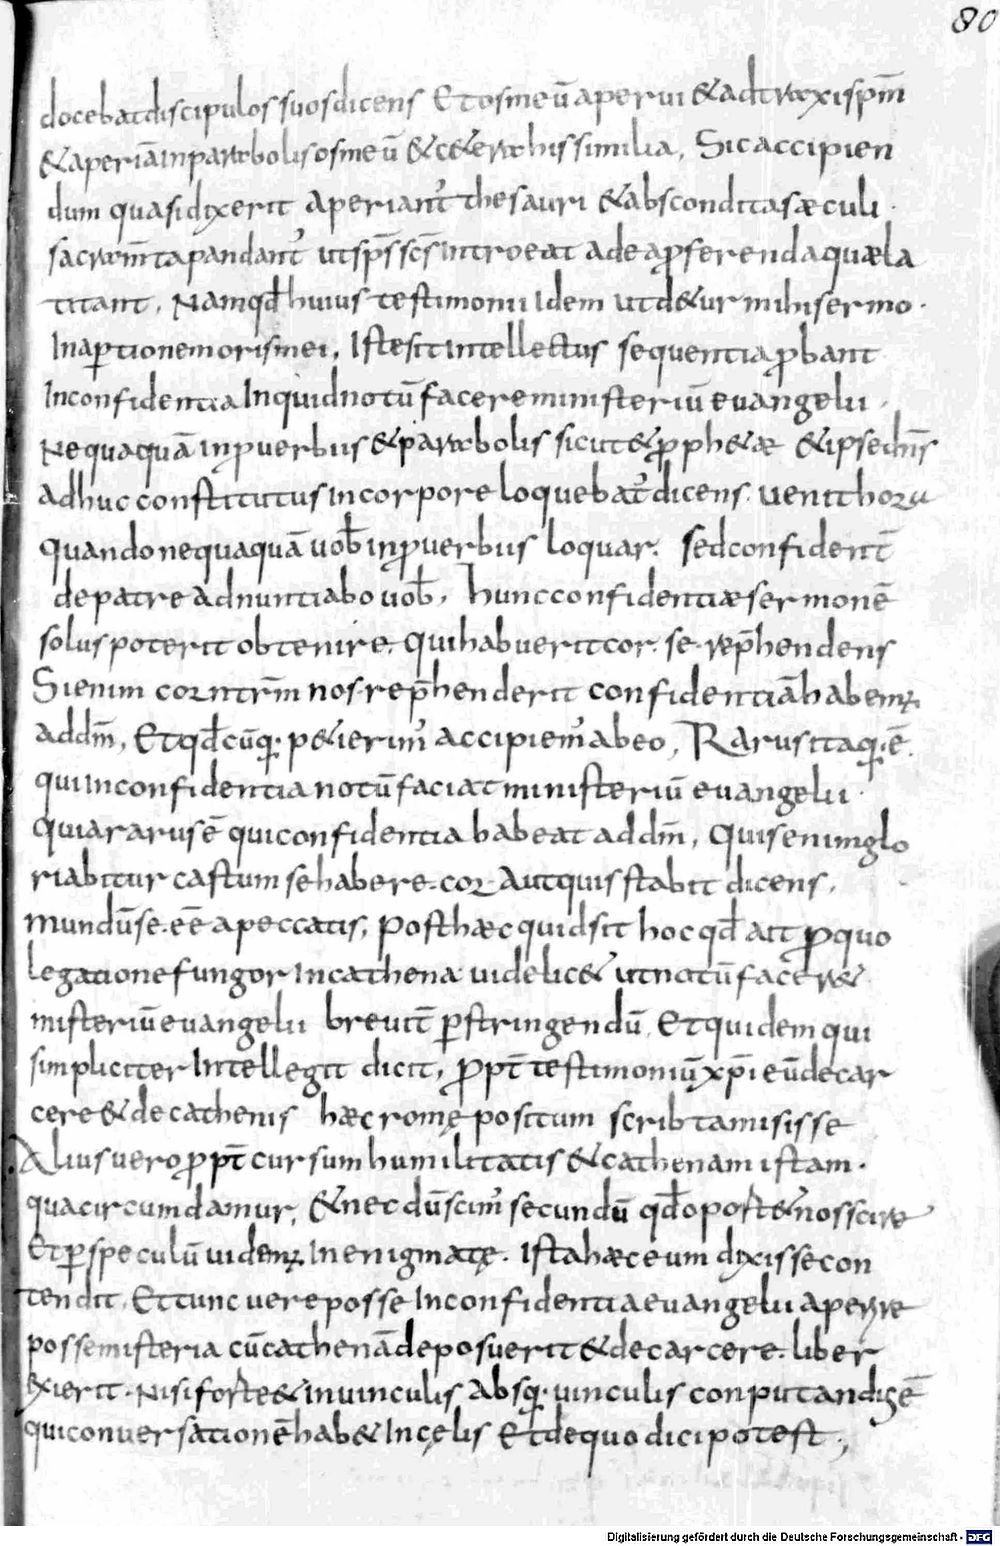 80
docebat discipulos suos dicens Et os meū aperui & adtraxi spm̄
& aperiā in parabolis os meū & cetera his similia, Sic accipien
dum quasi dixerit aperiant᷒ thesauri & abscondita sæculi.
sacram̄ta pandant᷒ ut sps̄ scs̄ introeat ad ea ꝓferenda quæ la
titant, Nam qd̄ huius testimonii idem utd&ur mihi sermo.
In aꝑtionem oris mei, Iste sit intellectus sequentia ꝓbant
In confidentia inquid notū facere ministeriū euangelii,
Nequaquā in ꝓuerbiis & parabolis sicut & ꝓph&æ & ipse dn̄s
adhuc constitutus in corpore loquebat᷒ dicens. uenit hora
quando nequaquā uob̄ in ꝓuerbiis loquar. sed confident̄
de patre adnuntiabo uob̄, hunc confidentiæ sermonē
solus poterit obtenire. qui habuerit cor. se. rep̄hendens
Si enim cor nr̄m nos. rep̄henderit confidentiā habemꝰ
ad dm̄, Et qd̄cūq. p&ierim᷒ accipiem᷒ ab eo, Rarus itaq. ē.
qui in confidentia notū faciat ministeriū euangelii.
quia rarus ē qui confidentia habeat ad dm̄, Quis enim glo
riabitur castum se habere. cor aut quis stabit dicens,
mundū se. eē a peccatis, Post hæc quid sit hoc qd̄ ait ꝓ quo
legatione fungor in cathena uidelic& ut notū facer&
misteriū euangelii breuit̄ ꝑstringendū, Et quidem qui
simpliciter intellegit dicit, ꝓpt̄ testimoniū xp̄i eū de car
cere & de cathenis hæc romę positum scribta misisse
Alius uero ꝓpt̄ cursum humilitatis & cathenam istam.
qua circumdamur, & necdū scim᷒ secundū qd̄ oport& nos scire
Et ꝑ speculū uidemꝰ in enigmatę. Ista hæc eum dixisse con
tendit, Et tunc uere posse in confidentia euangelii aperire
posse misteria cū cathenā deposuerit & de carcere. liber
exierit. Nisi forte & in uinculis absq. uinculis conputandus ē
qui conuersationē hab& in cęlis Et de quo dici potest,
Digitalisierung gefördert durch die Deutsche Forschungsgemeinschaft - DFG